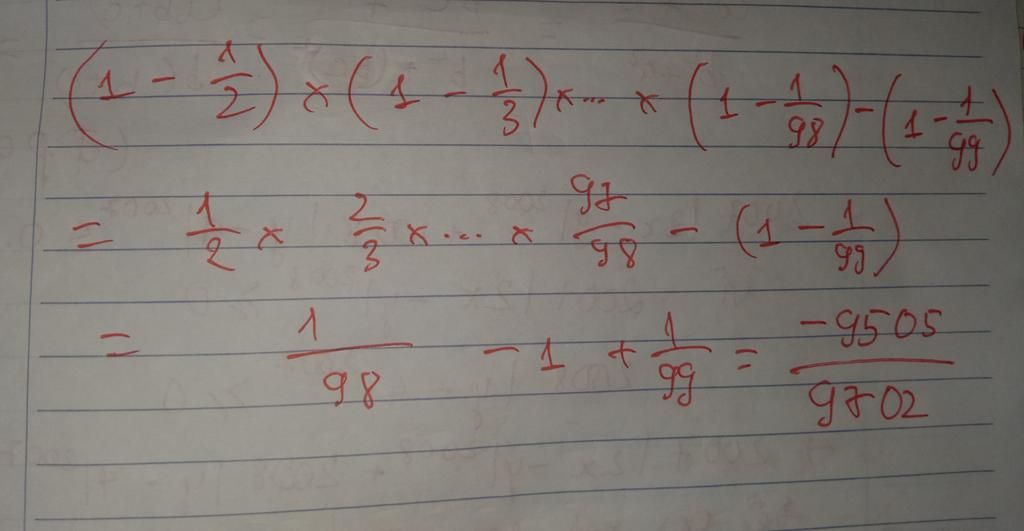 (1 - 1/2) × (1 - 1/3) × ... × (1 - 1/98) - (1 - 1/99)
= 1/2 × 2/3 × ... × 97/98 - (1 - 1/99)
= 1/98 - 1 + 1/99 = -9505/9702